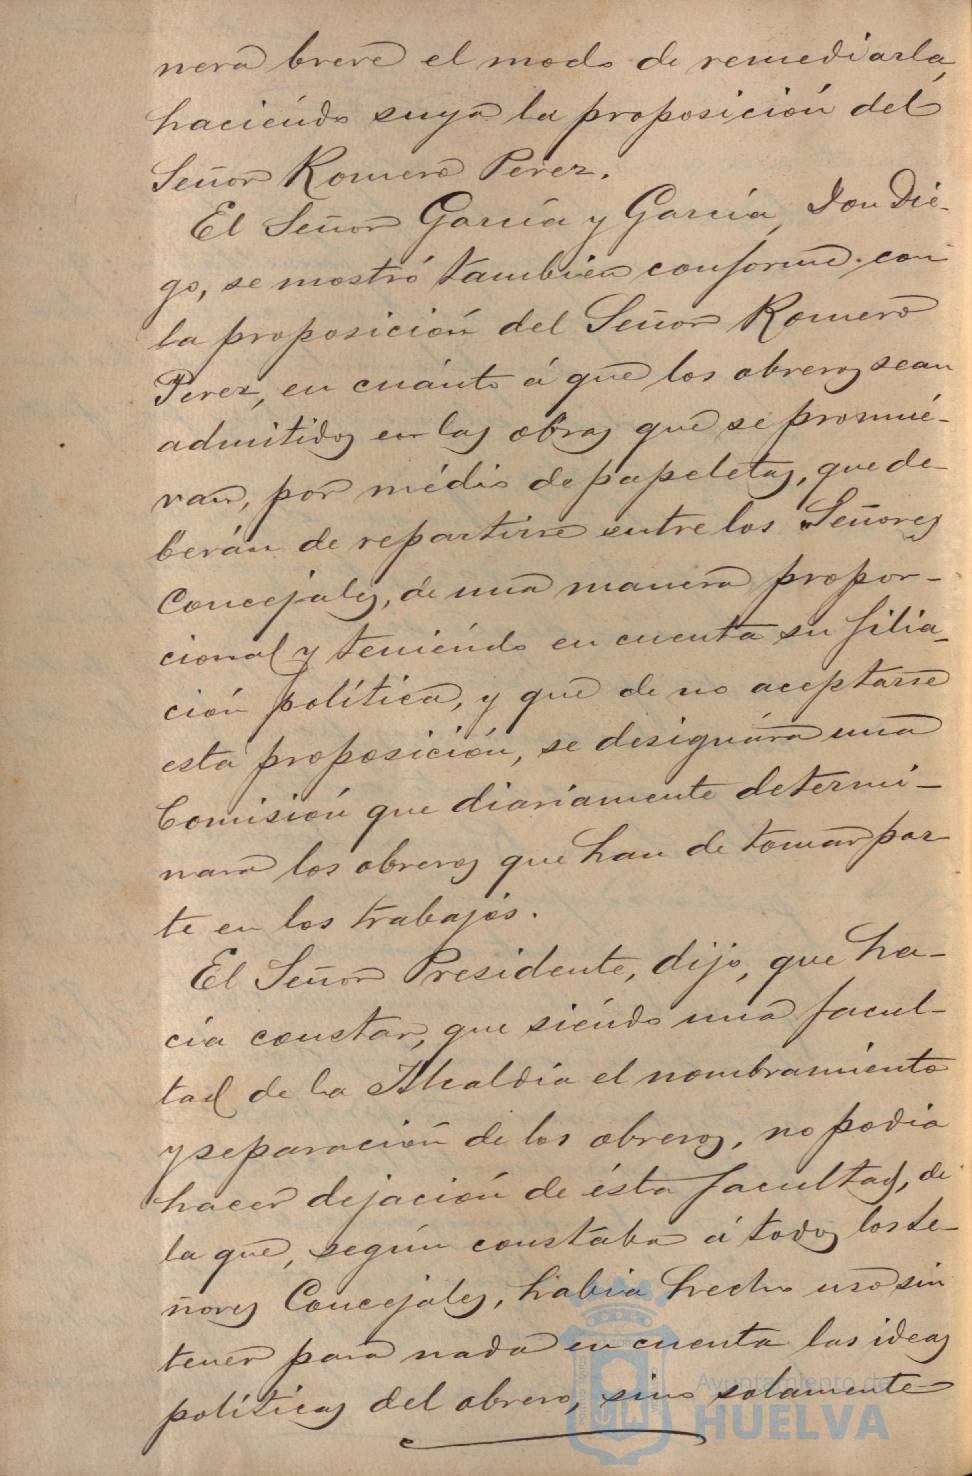 nera breve el modo de remediarla,
haciéndo suya la proposición del
Señor Romero Perez.
El Señor García y García, Don Die-
go, se mostró tambien conforme con
la proposición del Señor Romero
Perez, en cuánto á que los obreros sean
admitidos en las obras que se promué-
van, por médio de papeletas, que de-
berán de repartirse entre los Señores
Concejales, de una manera propor-
cional y teniéndo en cuenta su filia-
ción política, y que de no aceptarse
esta proposición, se designára una
Comisión que diariamente determi-
nara los obreros que han de tomar par
te en los trabajos.
El Señor Presidente, dijo, que ha-
cía constar, que siéndo una facul-
tad de la Alcaldía el nombramiento
y separación de los obreros, no podia
hacer dejación de ésta facultad, de
la que, según constaba á todos los Se-
ñores Concejales, habia hecho uso sin
tener para nada en cuenta las ideas
políticas del obrero, sino solamente
Ayuntamiento de
HUELVA